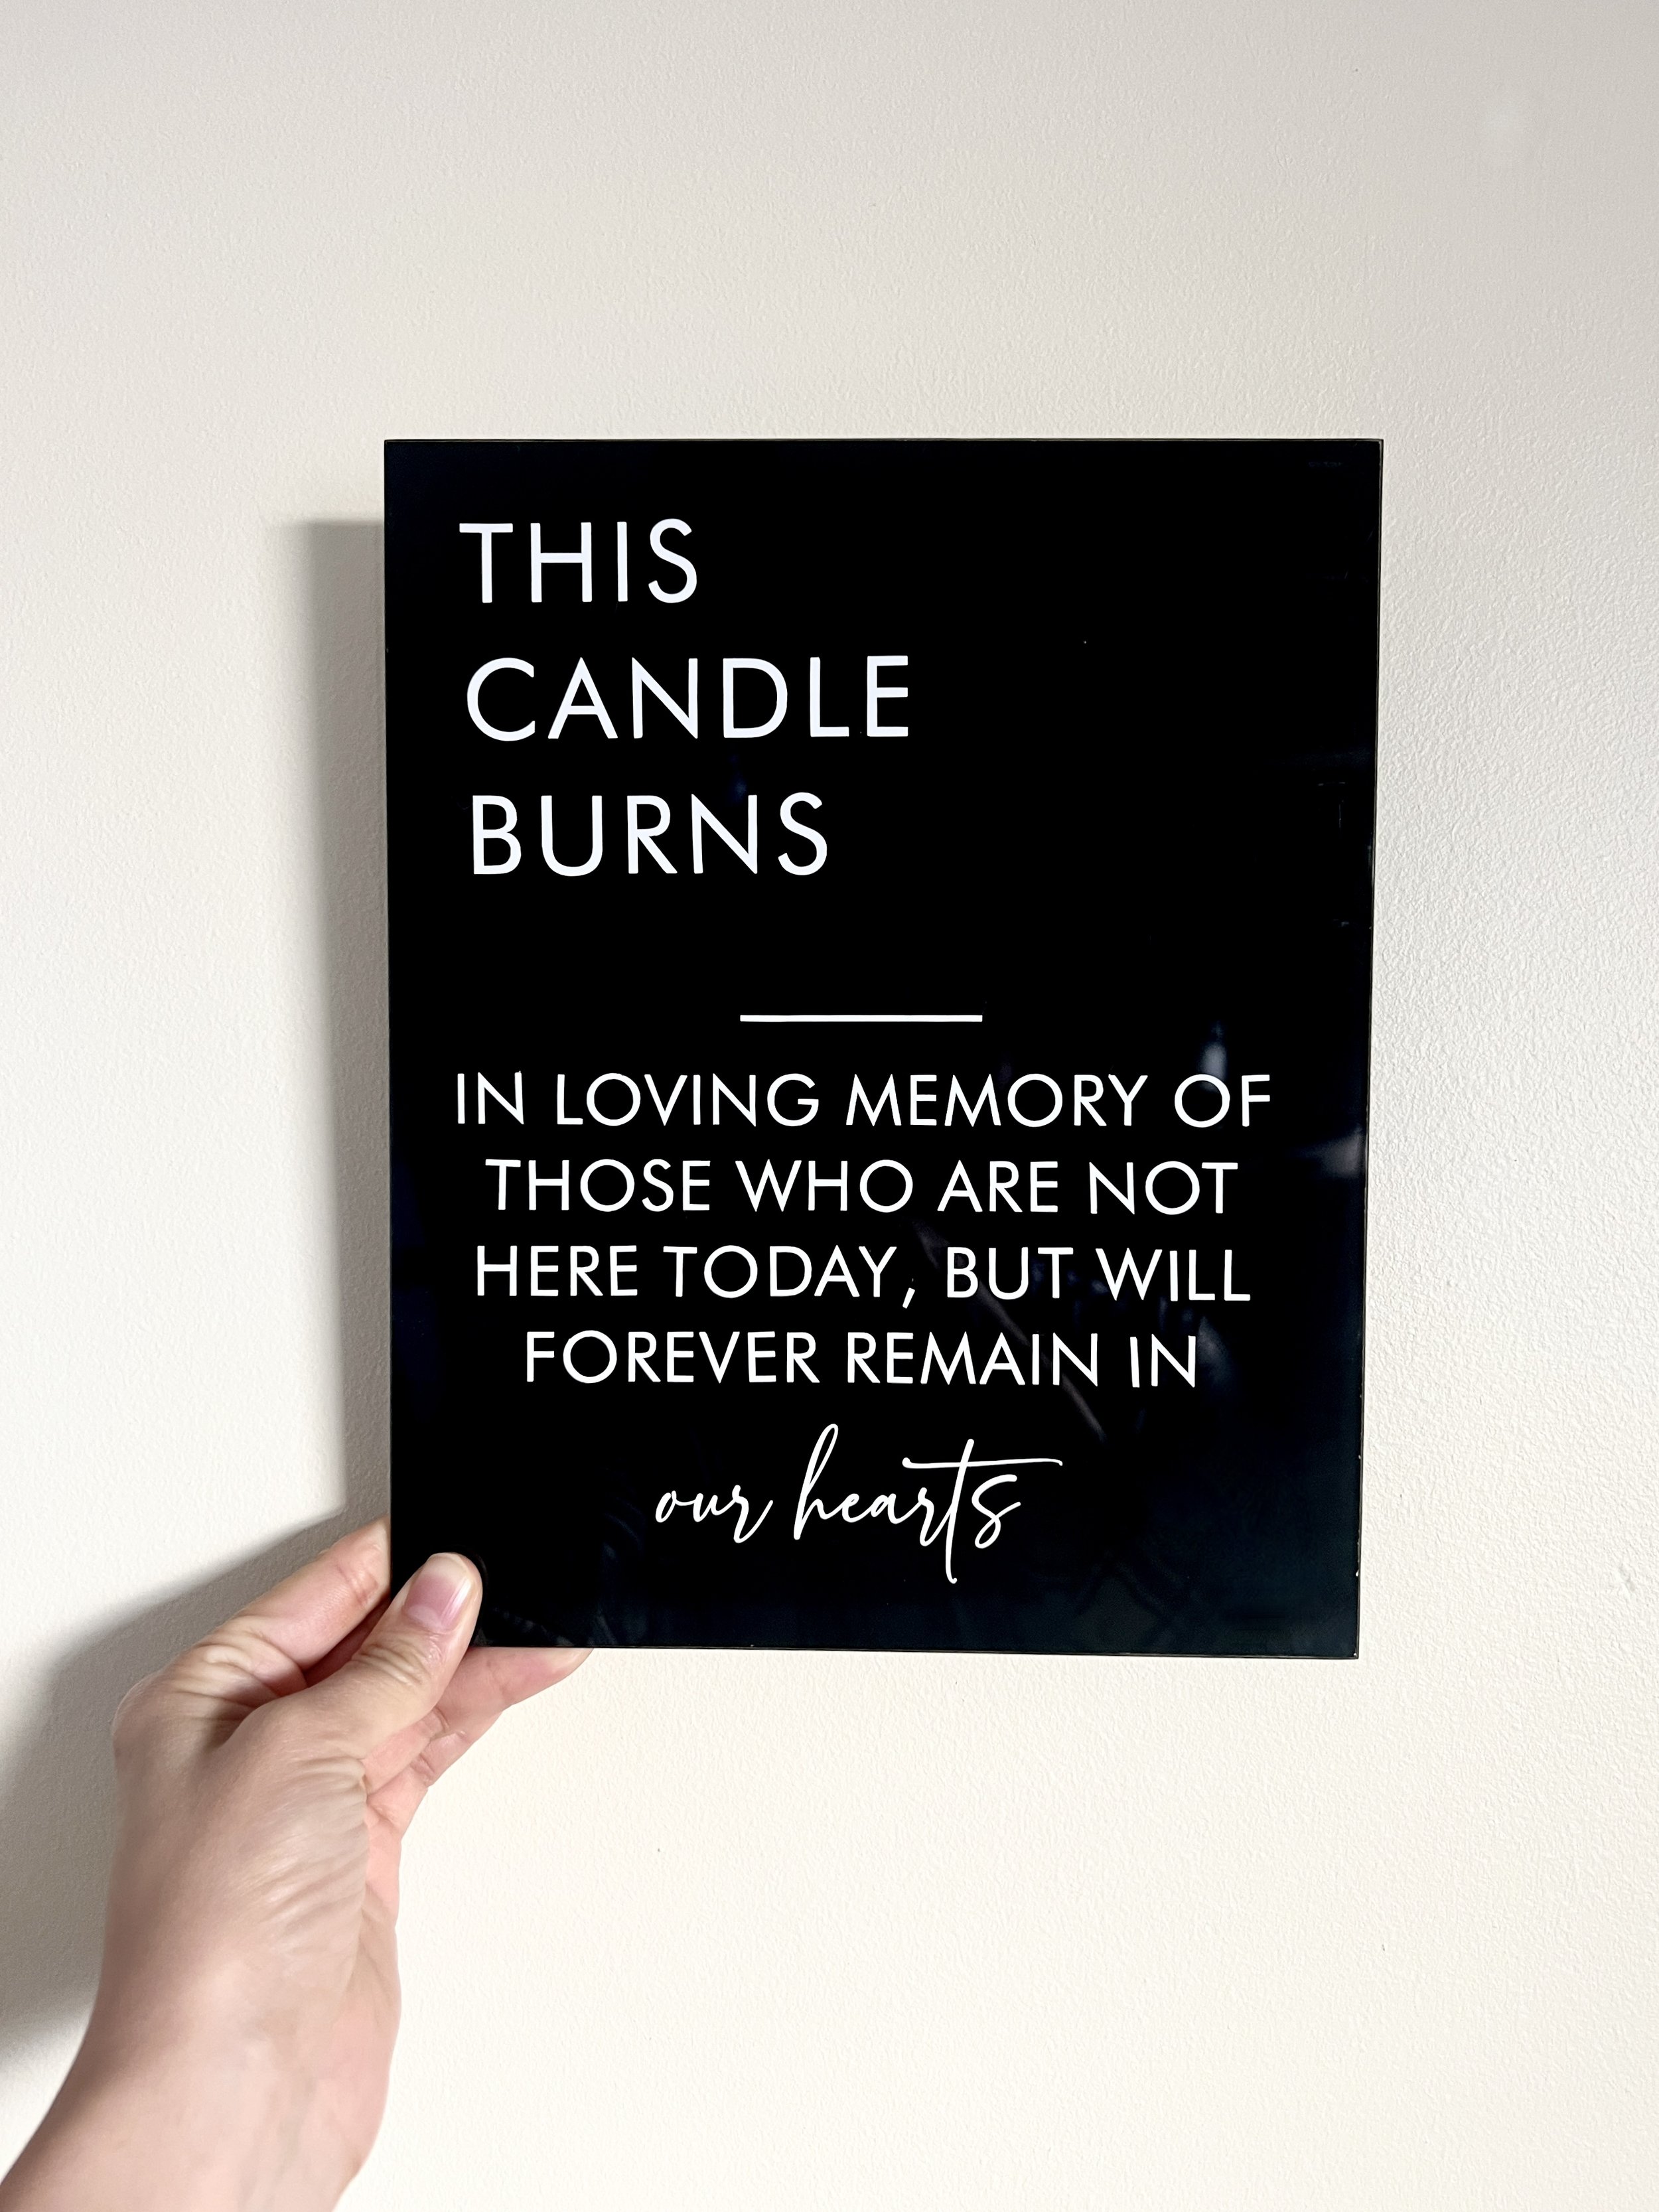 THIS
CANDLE
BURNS
IN LOVING MEMORY OF
THOSE WHO ARE NOT
HERE TODAY, BUT WILL
FOREVER REMAIN IN
our hearts